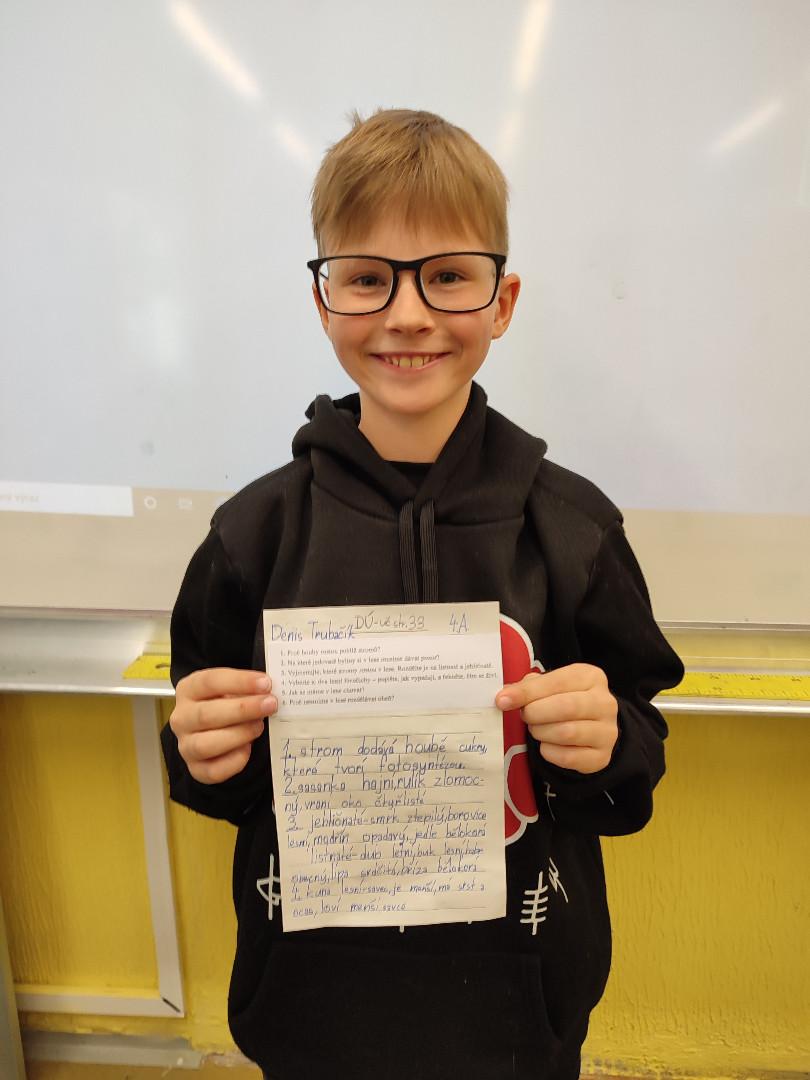 ný výraz
DÚ-uč str. 33 4.A
Denis Trubačík
1. Proč houby rostou poblíž stromů?
2. Na které jedovaté byliny si v lese musíme dávat pozor?
3. Vyjmenujte, které stromy rostou v lese. Rozdělte je na listnaté a jehličnaté.
4. Vyberte si dva lesní živočichy – popište, jak vypadají, a řekněte, čím se živí.
5. Jak se máme v lese chovat?
6. Proč nesmíme v lese rozdělávat oheň?
1. strom dodává houbě cukry,
které tvoří fotosyntézou.
2. sasanka hajní, rulík zlomoc-
ný, vraní oko čtyřlisté
3. jehličnaté-smrk ztepilý, borovice
lesní, modřín opadavý, jedle bělokorá
listnaté-dub letní, buk lesní, habr
obecný, lípa srdčitá, bříza bělokorá
4. kuna lesní-savec, je menší, má srst a
ocas, loví menší savce